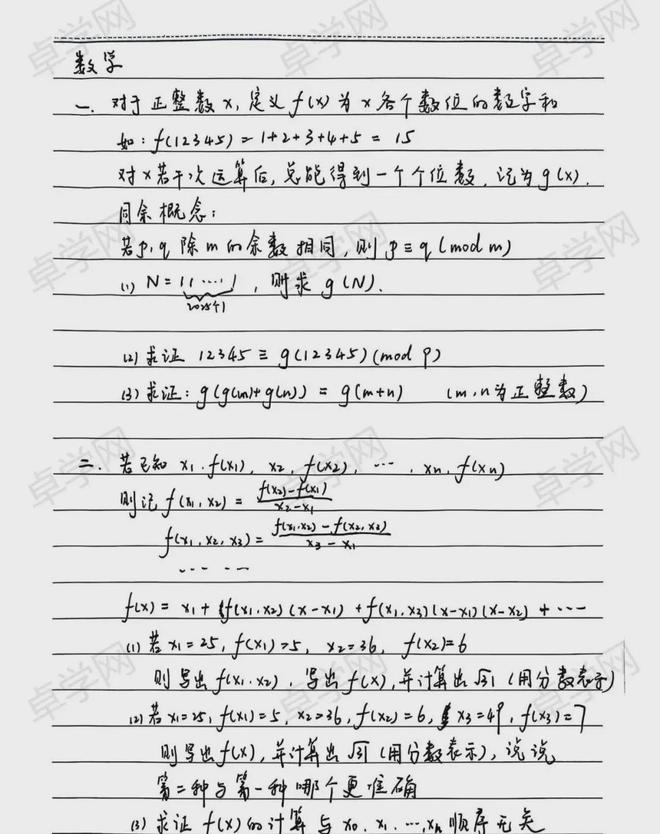 数学
一. 对于正整数x,定义f(x)为x各个数位的数字和
如:f(12345)=1+2+3+4+5=15
对x若干次运算后,总能得到一个个位数,记为g(x).
同余概念:
若p,q除m的余数相同,则p≡q(mod m)
(1) N=11……1,则求g(N).
2025个1
(2)求证 12345≡g(12345)(mod 9)
(3)求证:g(g(m)+g(n))=g(m+n) (m,n为正整数)
二. 若已知x1.f(x1),x2,f(x2),…,xn,f(xn)
则记f(x1,x2)=\frac{f(x2)-f(x1)}{x2-x1}
f(x1,x2,x3)=\frac{f(x1,x2)-f(x2,x3)}{x3-x1}
…… ……
f(x)=x1+f(x1,x2)(x-x1)+f(x1,x3)(x-x1)(x-x2)+…
(1)若x1=25,f(x1)=5,x2=36,f(x2)=6
则写出f(x1,x2),写出f(x),并计算出√31(用分数表示)
(2)若x1=25,f(x1)=5,x2=36,f(x2)=6,x3=49,f(x3)=7
则写出f(x),并计算出√31(用分数表示),说说
第二种与第一种哪个更准确
(3)求证f(x)的计算与x0,x1,…,xn顺序无关
卓学网
卓学网
卓学网
卓学网
卓学网
卓学网
卓学网
卓学网
卓学网